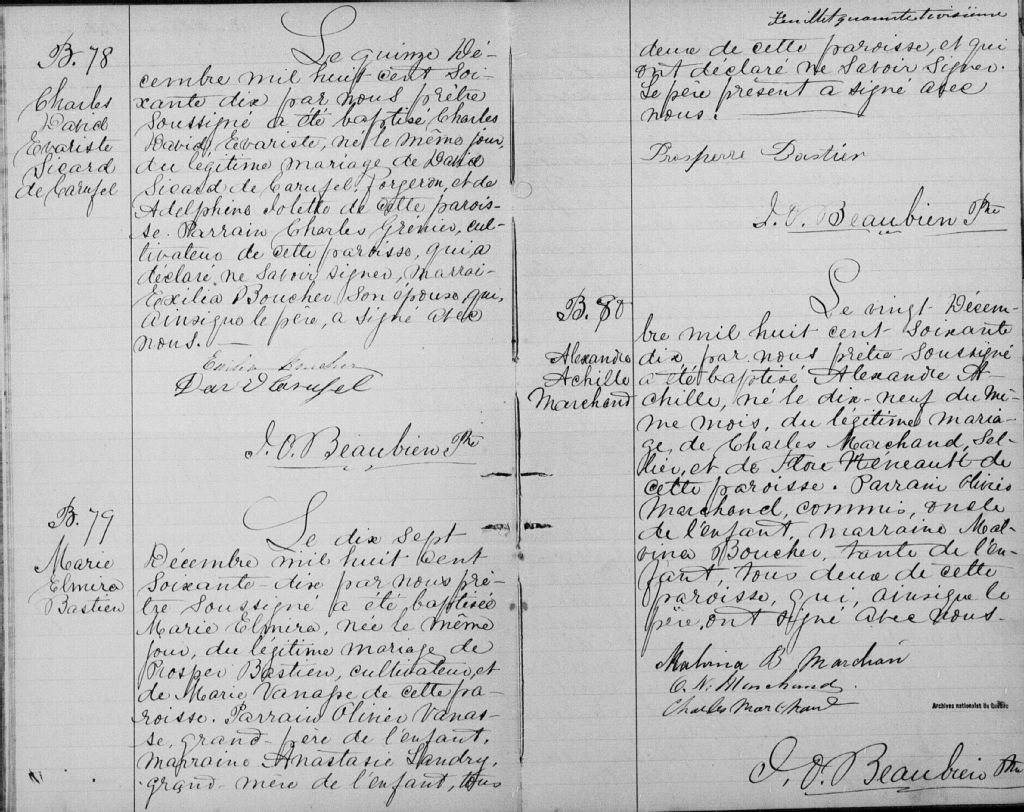 B. 78
Charles
David
Evariste
Sicard
de Carufel
Le quinze Dé-
cembre mil huit cent soi-
xante dix par nous prêtre
soussigné a été baptisé Charles
David, Evariste, né le même jour,
du légitime mariage de David
Sicard de Carufel, forgeron, et de
Adelphine Jolette de cette parois-
se. Parrain Charles Grenier, cul-
tivateur de cette paroisse, qui, a
déclaré ne savoir signer, marrai-
Exilia Boucher son épouse, qui,
ainsique le père, a signé avec
nous.
Exilia Boucher
David Carufel
J. O. Beaubien Ptre
B. 79
Marie
Elmira
Bastien
Le dix sept
Décembre mil huit cent
soixante-dix par nous prê-
tre soussigné a été baptisée
Marie Elmira, née le même
jour, du légitime mariage de
Prosper Bastien, cultivateur, et
de Marie Vanasse de cette pa-
roisse. Parrain Olivier Vanas-
se, grand-père de l'enfant,
marraine Anastasie Landry,
grand-mère de l'enfant, tous
Feuillet quarante troisième
deux de cette paroisse, et qui
ont déclaré ne savoir signer.
Le père présent a signé avec
nous.
Prosperre Bastien
J. O. Beaubien Ptre
B. 80
Alexandre
Achille
Marchand
Le vingt Décem-
bre mil huit cent soixante
dix par nous prêtre soussigné
a été baptisé Alexandre A-
chille, né le dix-neuf du mê-
me mois, du légitime maria-
ge, de Charles Marchand, Sel-
lier, et de Flore Héneault de
cette paroisse. Parrain Olivier
Marchand, commis, oncle
de l'enfant, marraine Mal-
vina Boucher, tante de l'en-
fant, tous deux de cette
paroisse, qui, ainsique le
père, ont signé avec nous.
Malvina B Marchan
O. N. Marchand
Charles Marchand
Archives nationales du Québec
J. O. Beaubien Ptre